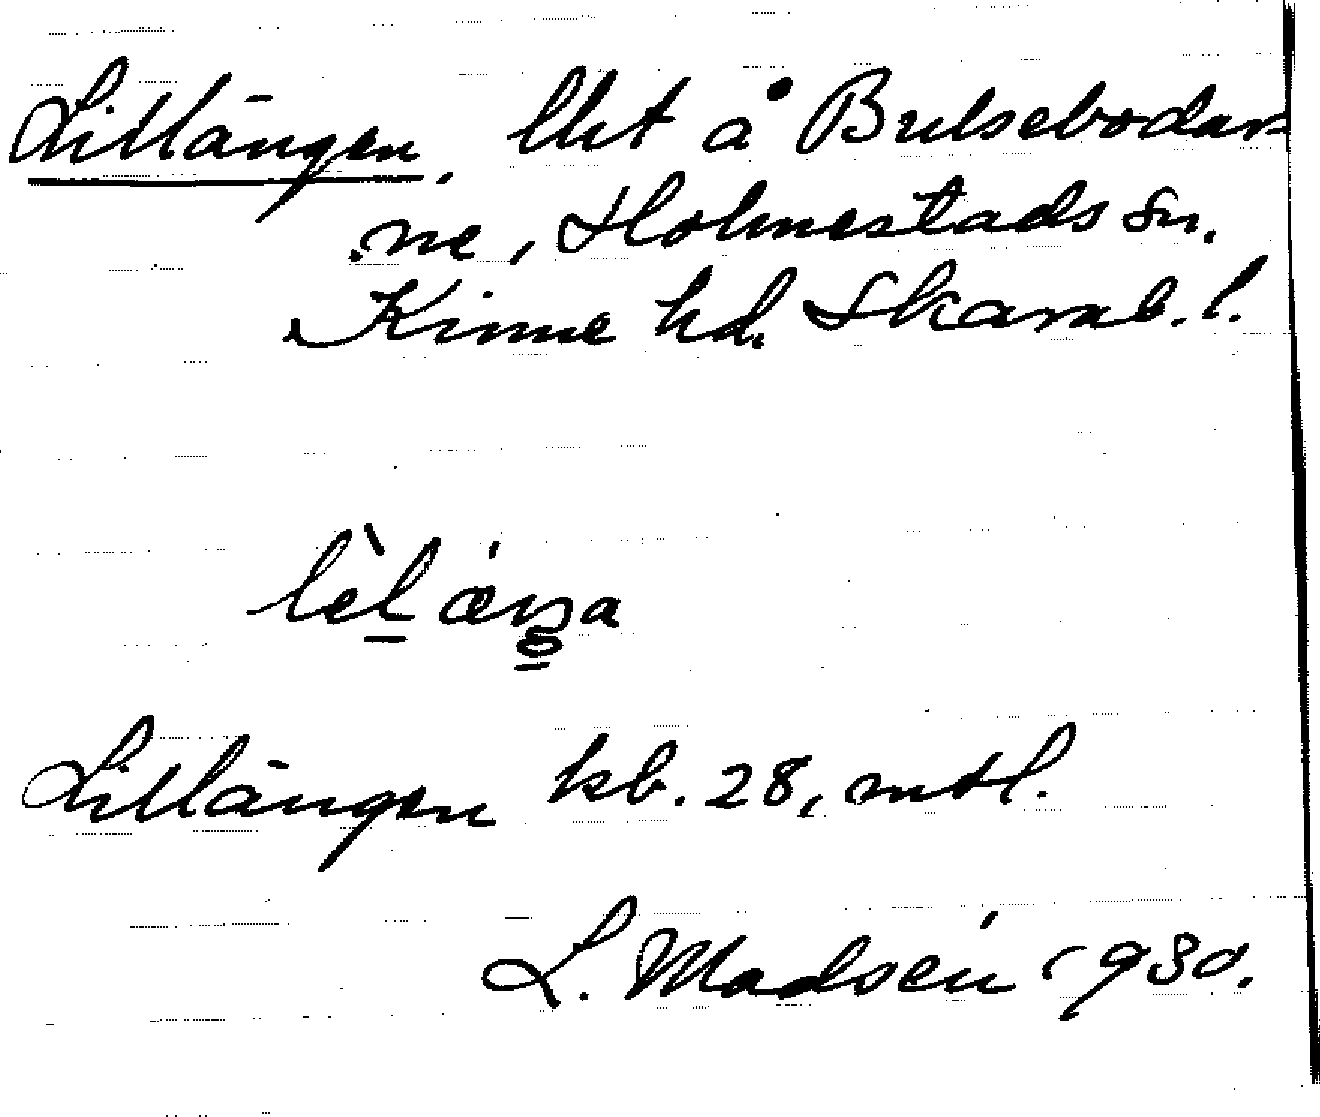 Lillängen, lht å Bulsebodar
ne, Holmestads sn.
Kinne hd. Skarab. l.
lèlæŋa
Lillängen kb. 28, mtl.
L. Madsén 1930.